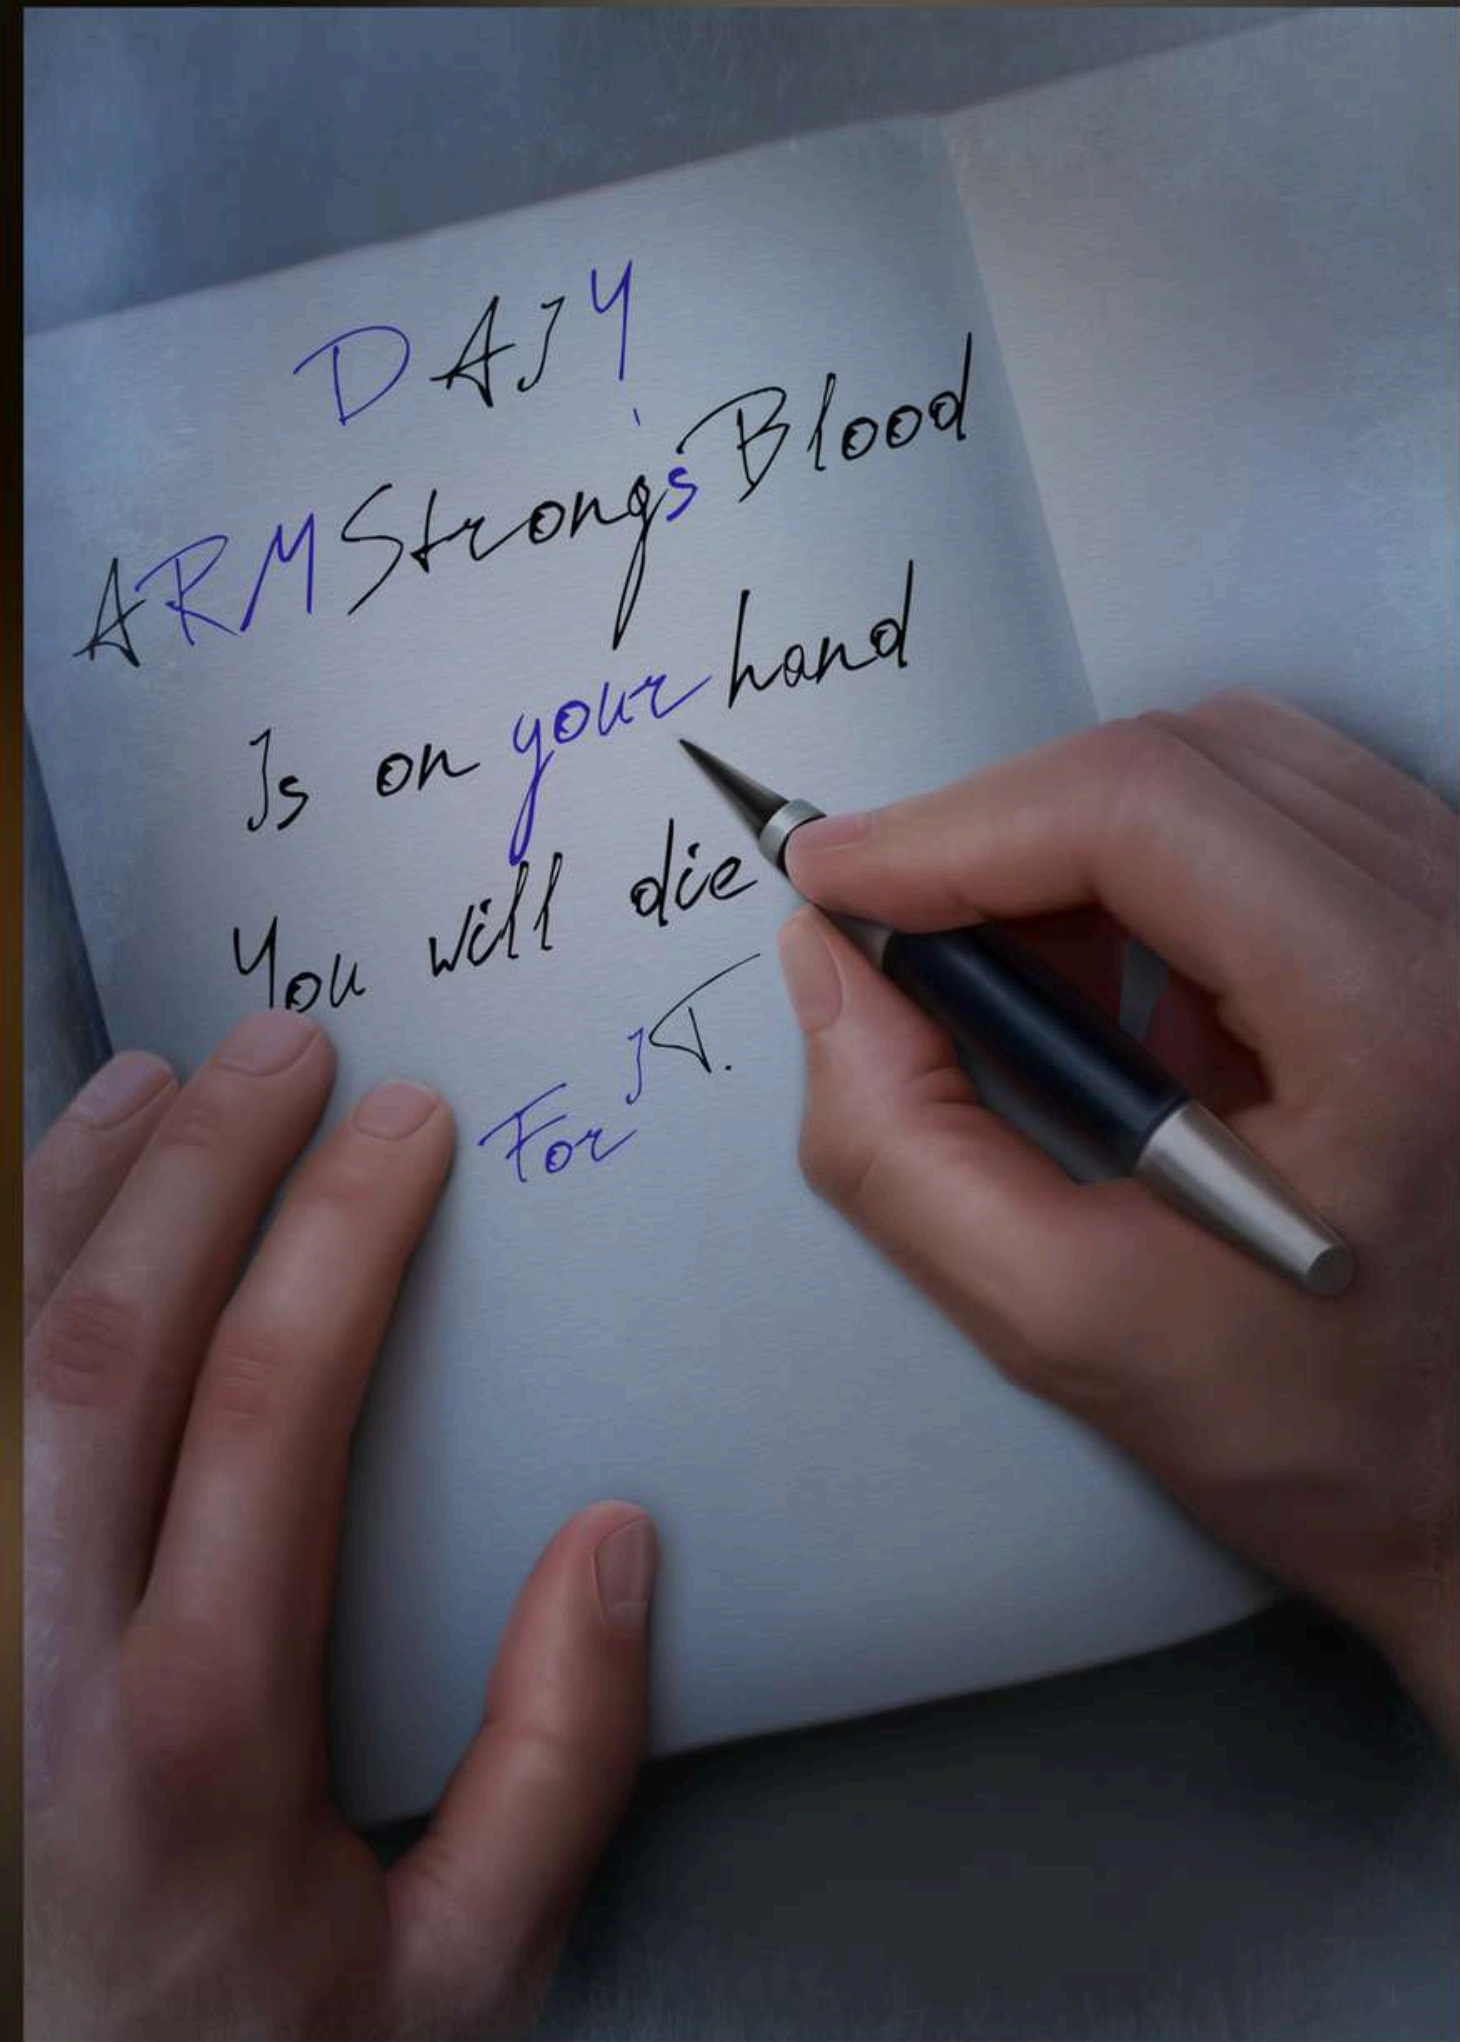 DAIY
ARMStrong's Blood
Is on your hand
You will die
For IT.